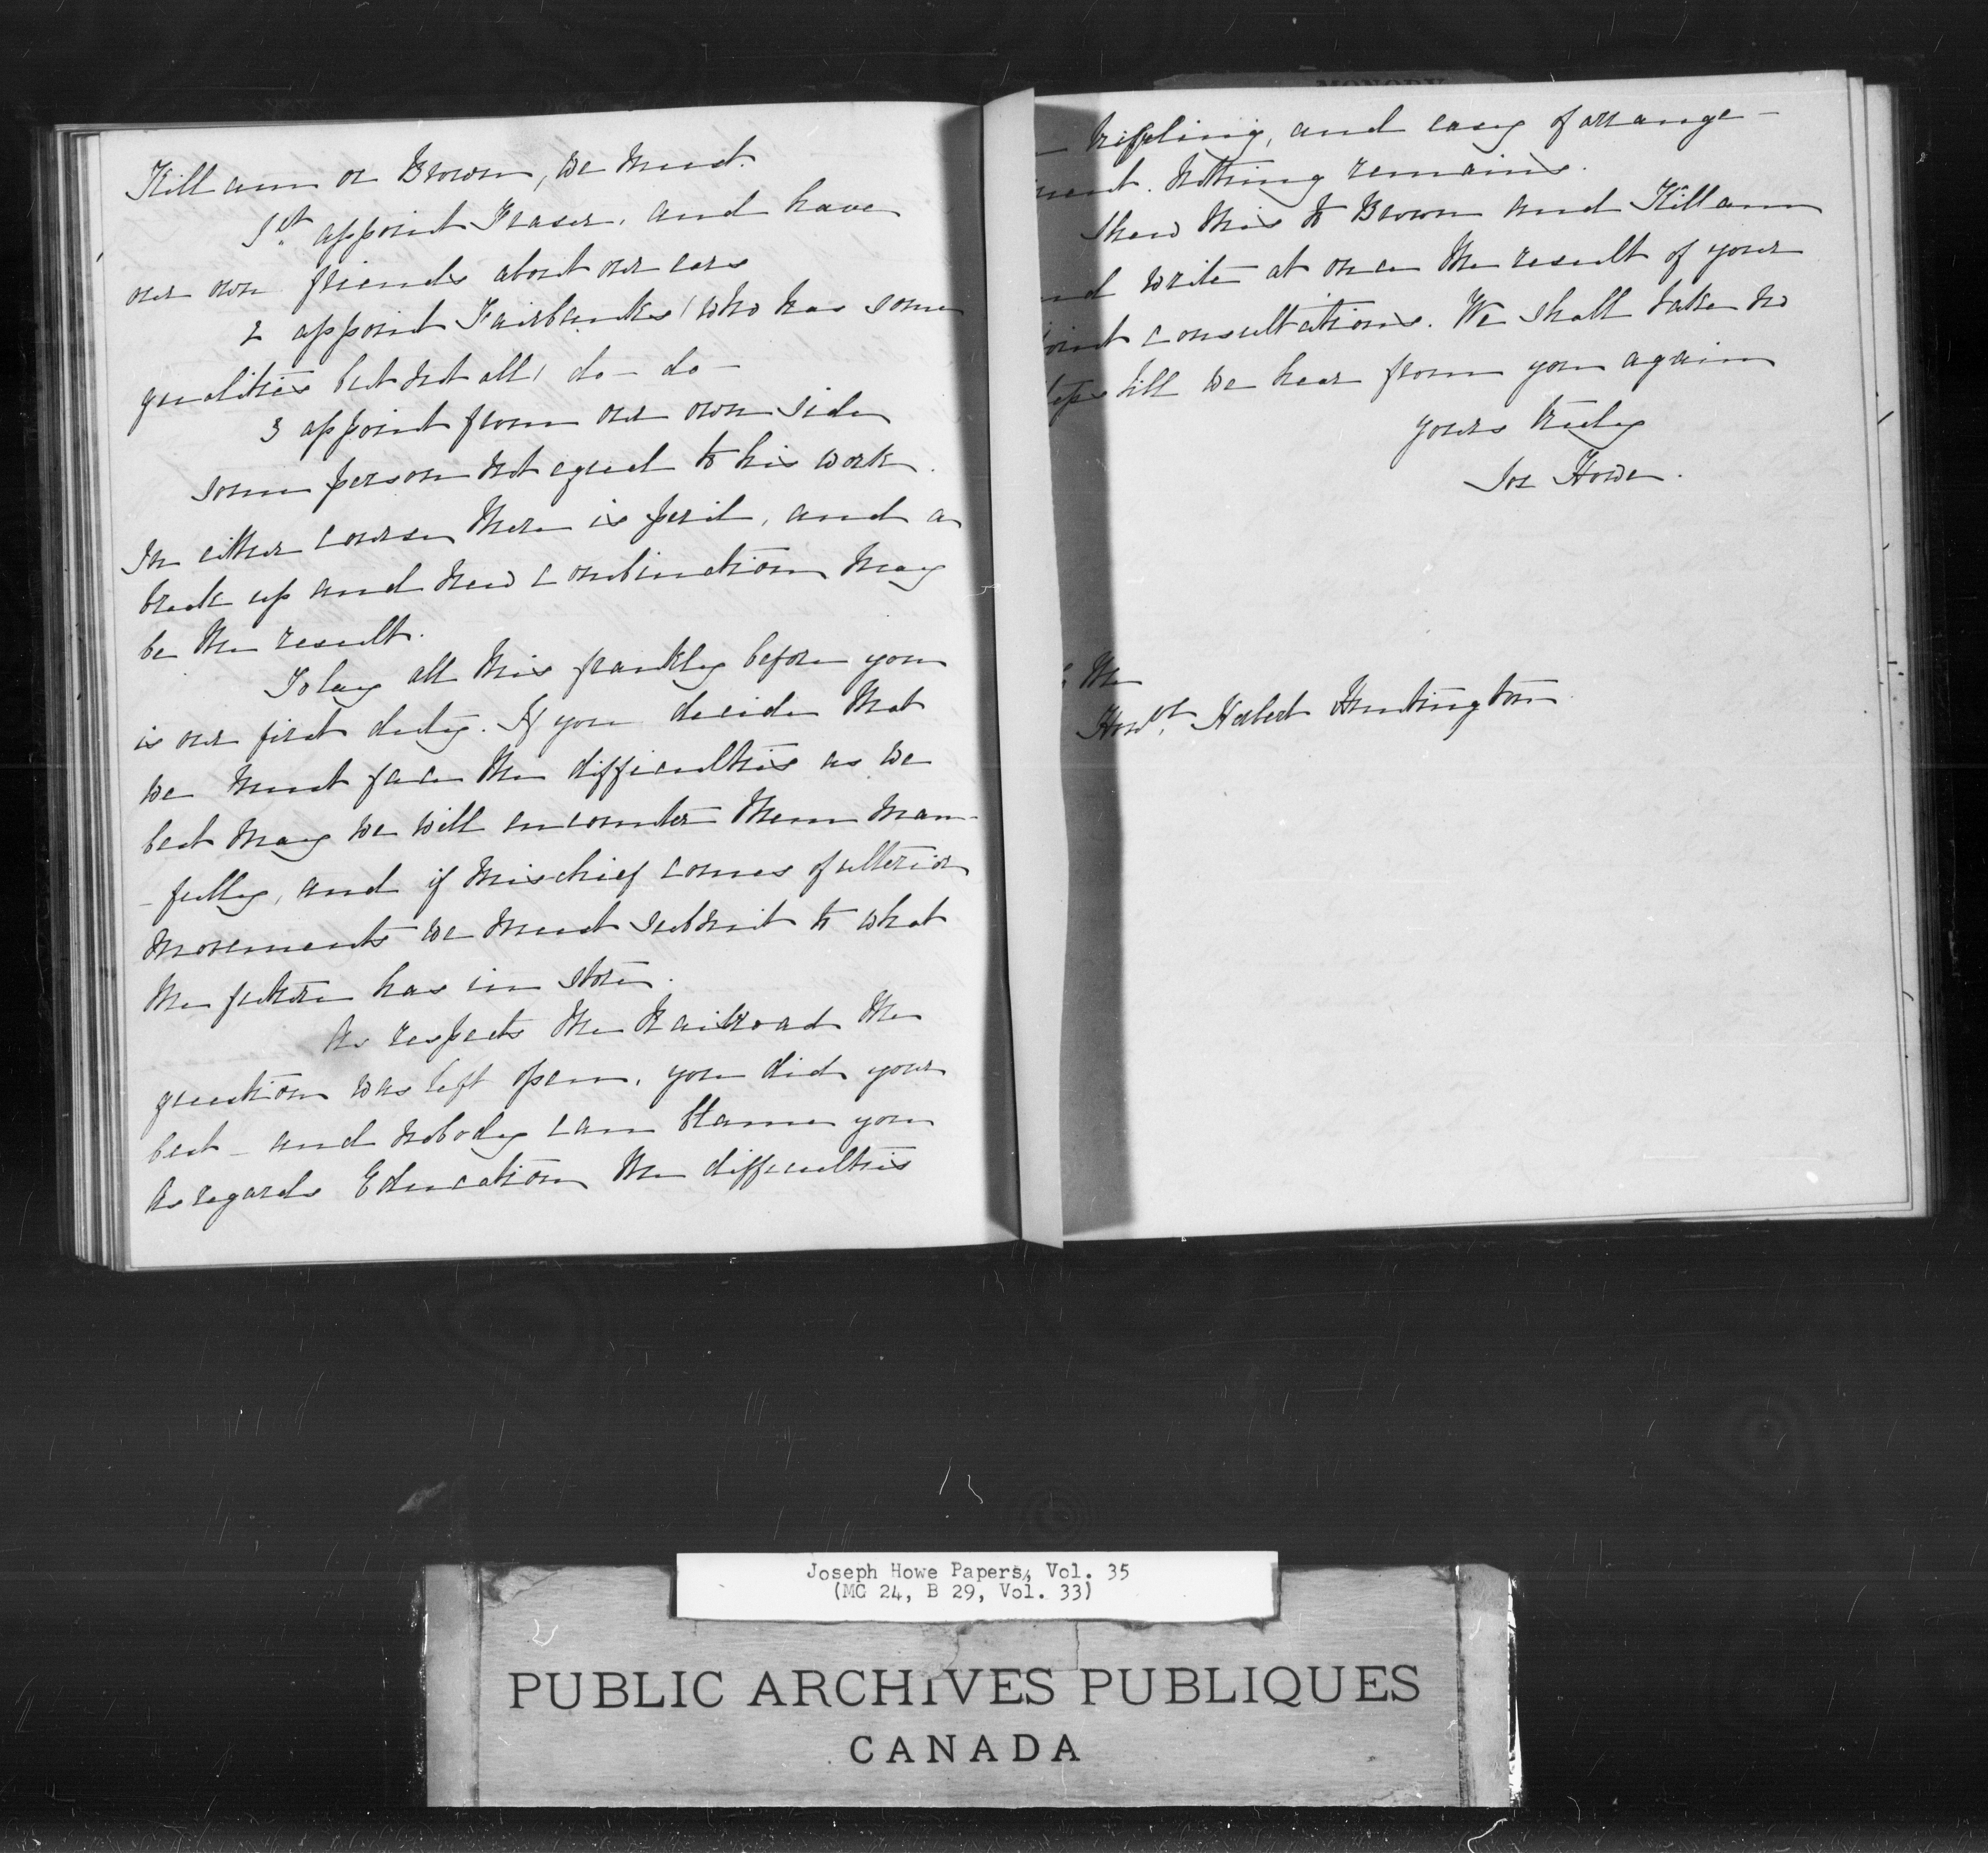 Killam or Brown, we must.
1st appoint Fraser, and have
our own friends about our ears
2 appoint Fairbanks (who has some
qualities but not all) do - do -
3 appoint from our own side
some person not equal to his work.
In either course there is peril, and a
break up and new combination may
be the result.
To lay all this frankly before you
is our first duty. If you decide that
we must face the difficulties as we
best may we will encounter them man-
-fully, and if mischief comes of ulterior
movements we must submit to what
the future has in store.
As respects the Railroad the
question was left open, you did your
best - and nobody can blame you
As regards Education the difficulties
trifling, and easy of arrange-
ment. Nothing remains.
Shew this to Brown and Killam
and write at once the result of your
joint consultations. We shall take no
steps till we hear from you again
yours truly
Jos Howe.
To the
Honbl. Herbert Huntington
Joseph Howe Papers, Vol. 35
(MG 24, B 29, Vol. 33)
PUBLIC ARCHIVES PUBLIQUES
CANADA